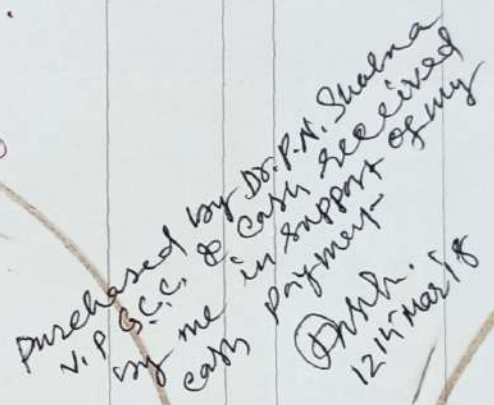 purchased by Dr. P. N. Sharma
V. P. G. C. C. & cash received
by me in support of my
cash payment
12th Mar 18